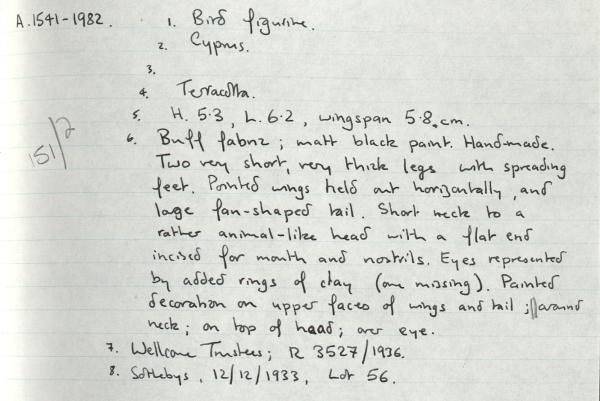 A.1541-1982.
1. Bird figurine.
2. Cyprus.
3.
4. Terracotta.
5. H. 5.3, L. 6.2, wingspan 5.8 cm.
151/2
6. Buff fabric; matt black paint. Handmade.
Two very short, very thick legs with spreading
feet. Pointed wings held out horizontally, and
large fan-shaped tail. Short neck to a
rather animal-like head with a flat end
incised for mouth and nostrils. Eyes represented
by added rings of clay (one missing). Painted
decoration on upper faces of wings and tail; around
neck; on top of head; over eye.
7. Wellcome Trustees; R 3527/1936.
8. Sothebys, 12/12/1933, Lot 56.